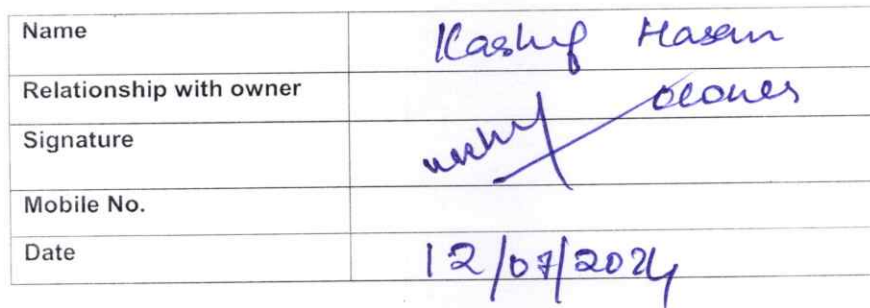 Name Kashif Hasan
Relationship with owner
Signature
Mobile No.
Date 12/07/2024